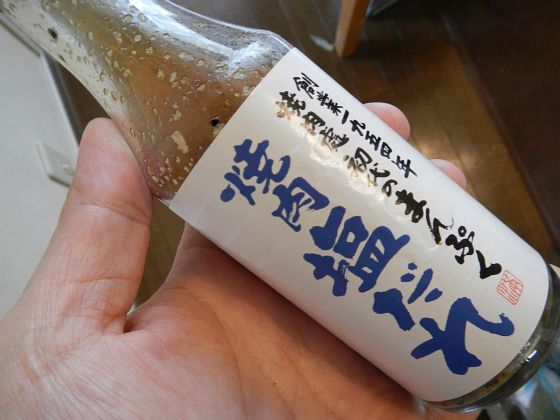 創業一九五四年
焼肉處 初代のまんぷく
焼肉塩だれ